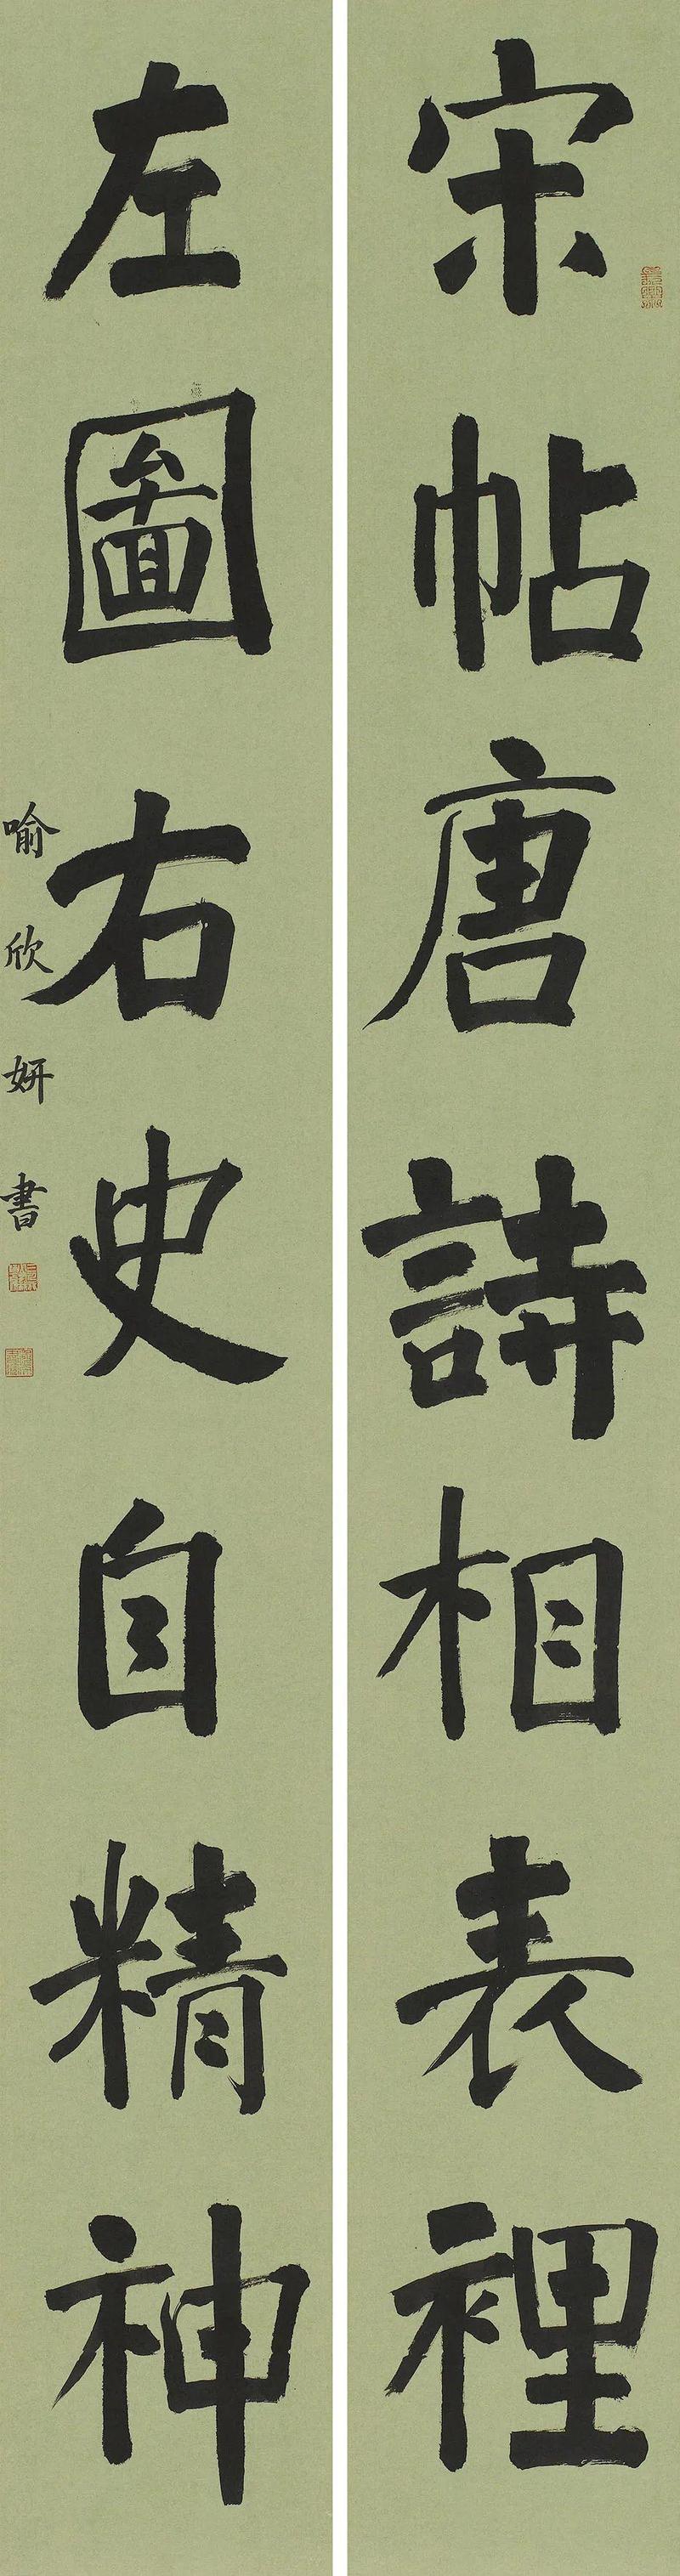 宋帖唐詩相表裡
左圖右史自精神
喻欣妍書